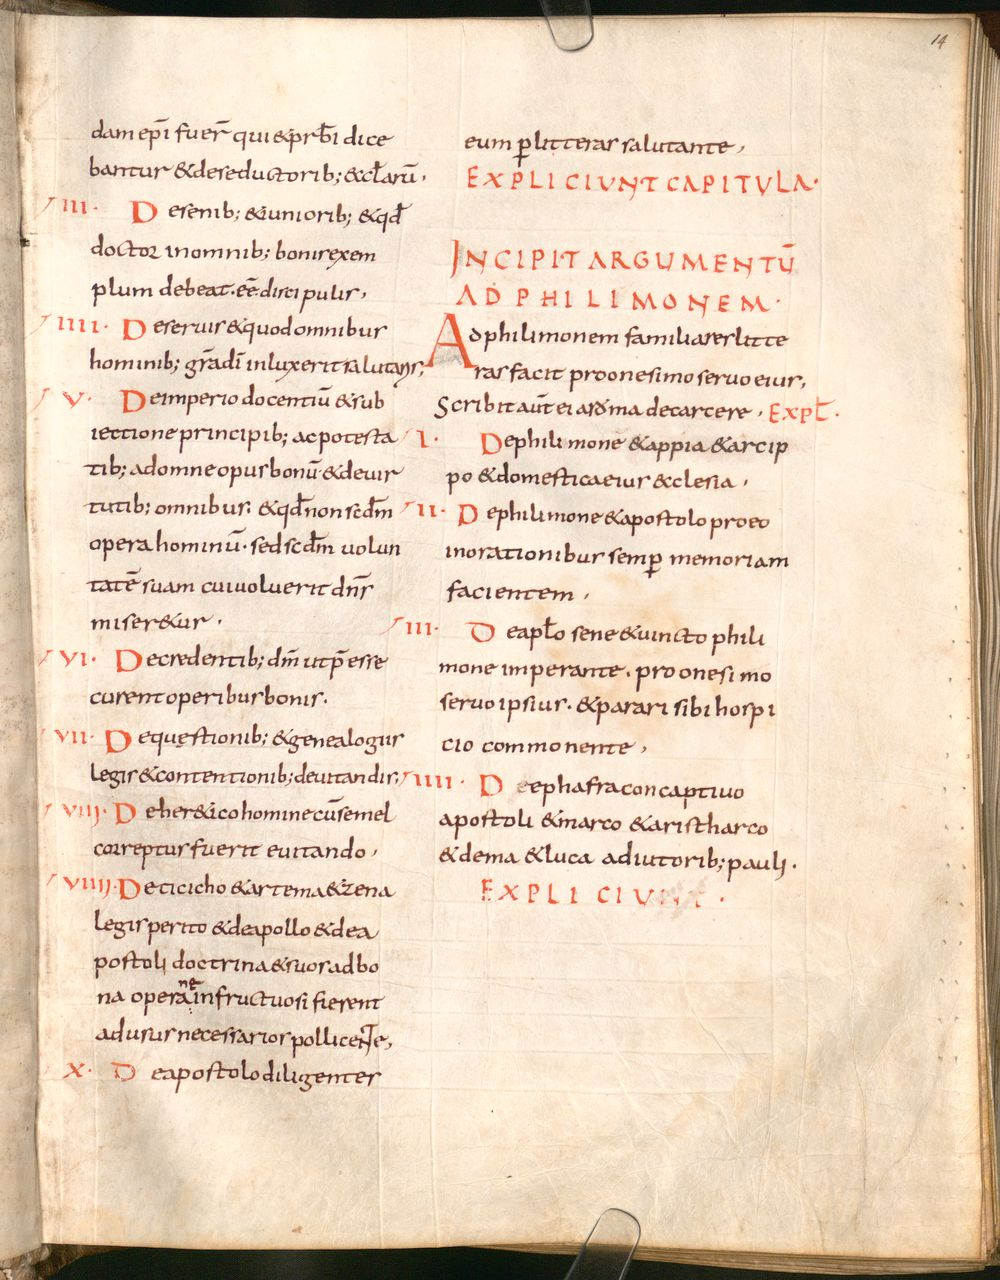 14
dam ep̄i fuer̄ qui & prb̄i dice
bantur & de seductorib; & cl̄arū,
III. De senib; & iuniorib; & qd̄
doctor in omnib; boni rexem
plum debeat. ēē discipulis,
IIII. De servis & quod omnibus
hominib; gr̄a dī inluxerit salutaris,
V. De imperio docentiū & sub
iectione principib; ac potesta
tib; ad omne opus bonū & de vir
tutib; omnibus. & qd̄ non scdm̄
opera hominū. sed scdm̄ uolun
tatē suam cui uoluerit dn̄s
miser&ur.
VI. De credentib; dm̄ ut p̄esse
curent operibus bonis.
VII. De quęstionib; & genealogiis
legis & contentionib; deuitandis,
VIII. De her&ico homine cū semel
correptus fuerit euitando,
VIIII. De ticicho & artema & zena
legis perito & de apollo & de a
postoli doctrina & suos ad bo
ne
na opera infructuosi fierent
ad usus necessarios pollicente,
X. De apostolo diligenter
eum p̱ litteras salutante,
EXPLICIUNT CAPITULA.
INCIPIT ARGUMENTŪ
AD PHILIMONEM.
Ad philimonem familiares litte
ras facit pro onesimo servo eius,
Scribit aūt ei a roma de carcere, EXPL̄.
I. De philimone & appia & arcip
po & domestica eius &clesia,
II. De philimone & apostolo pro eo
in orationibus semp̱ memoriam
facientem,
III. De apl̄o sene & uincto phili
mone imperante. pro onesimo
servo ipsius. & parari sibi hospi
cio commonente,
IIII. De ephafra concaptiuo
apostoli & marco & aristharco
& dema & luca adiutorib; pauli.
EXPLICIUNT.